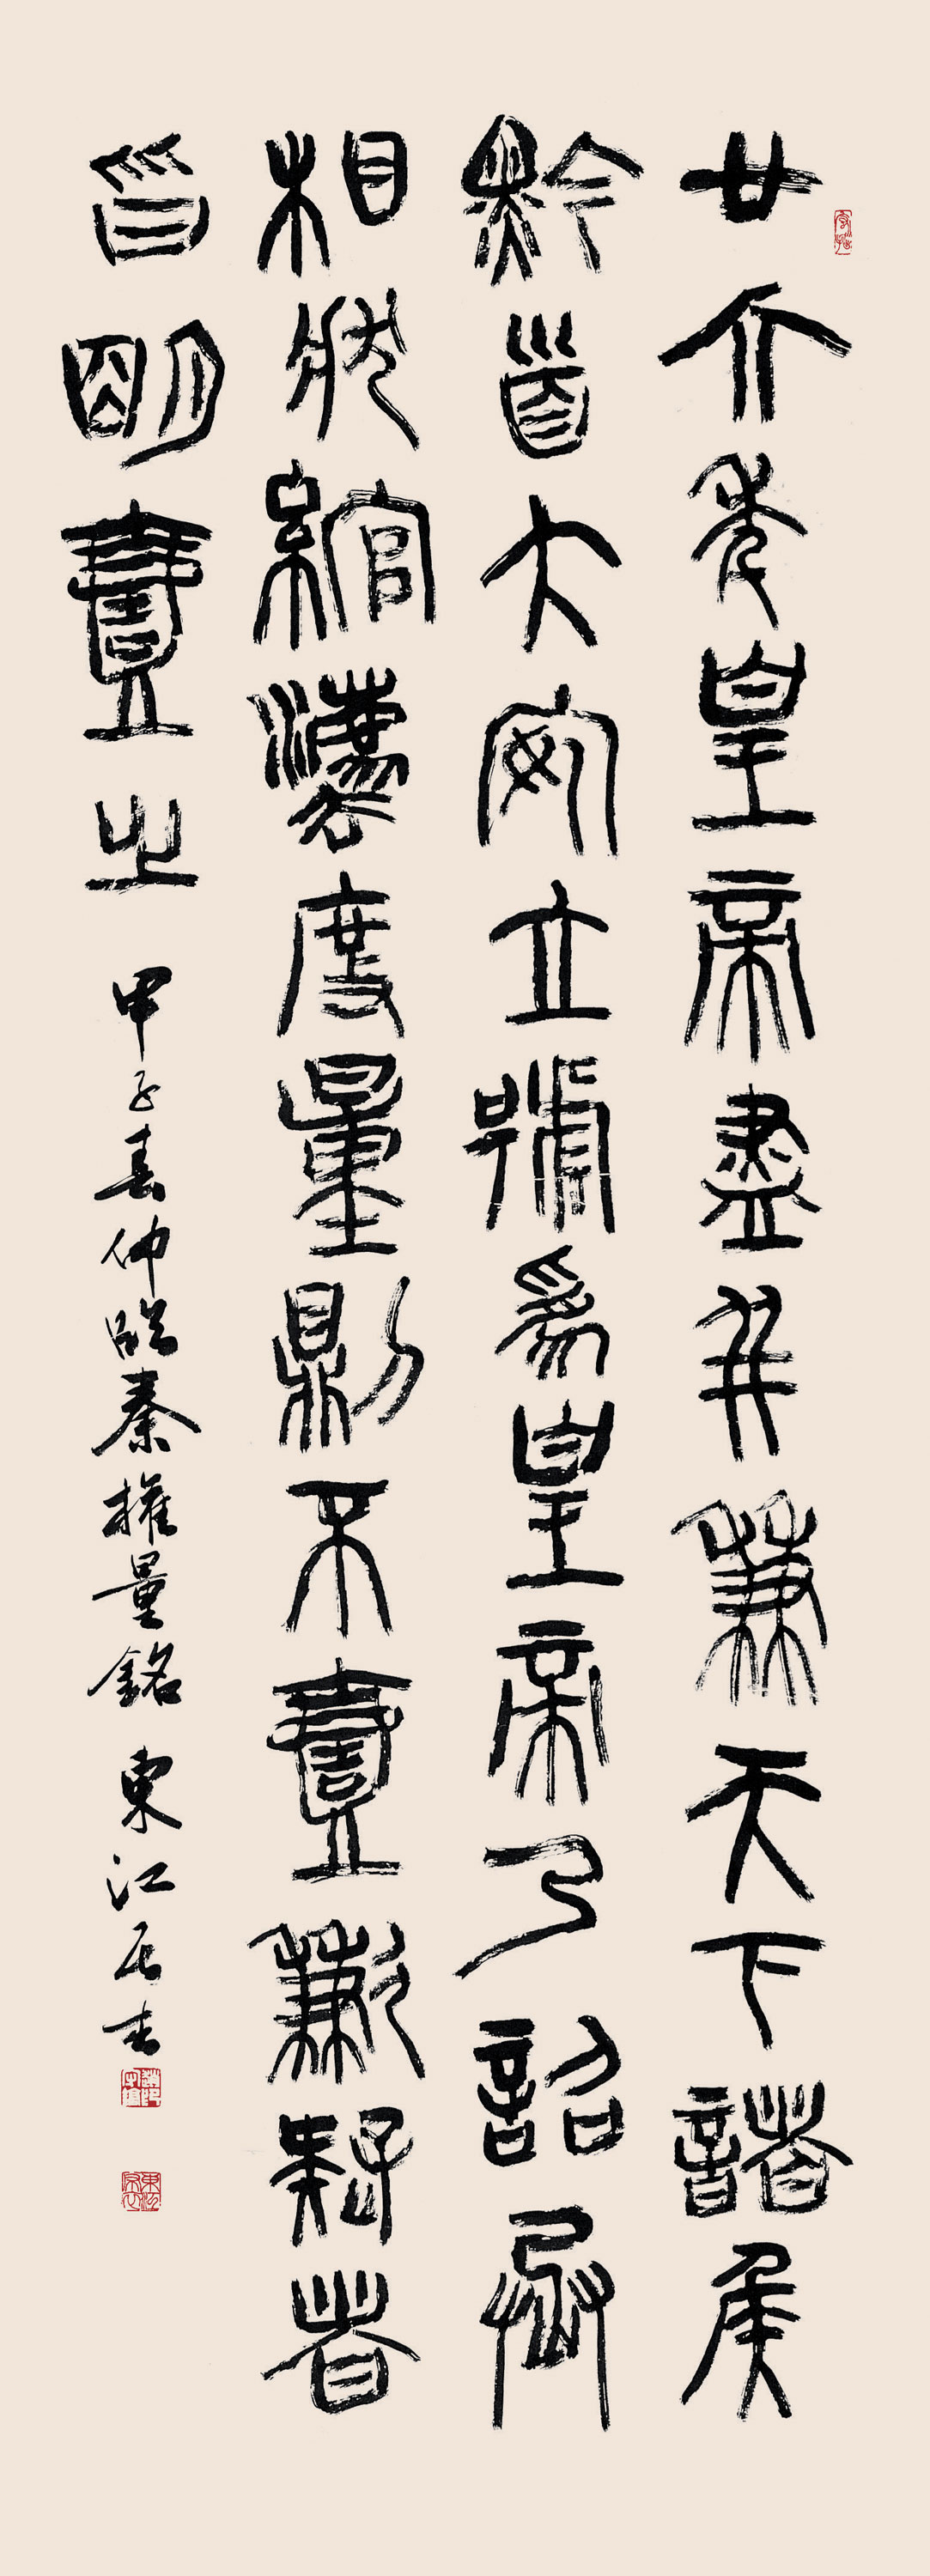 廿六年皇帝盡并兼天下諸侯
黔首大安立號為皇帝乃詔丞
相狀綰灋度量則不壹歉疑者
皆明壹之 甲子春仲臨秦權量銘 東江居士